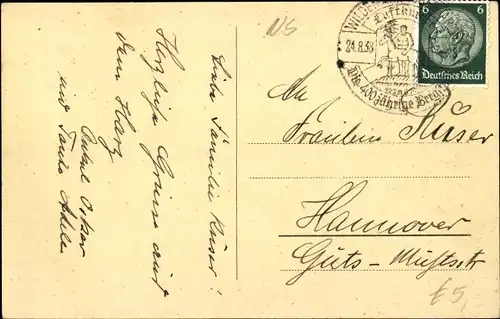 NS
Liebe Familie Küser!
Herzliche Grüsse aus
dem Harz
Onkel Oskar
und Tante Adele
24.8.38
Luftkur
Die 400jährige Berg
6
6
Deutsches Reich
An
Fräulein Küser
Hannover
Guts-Muthsstr
£5,